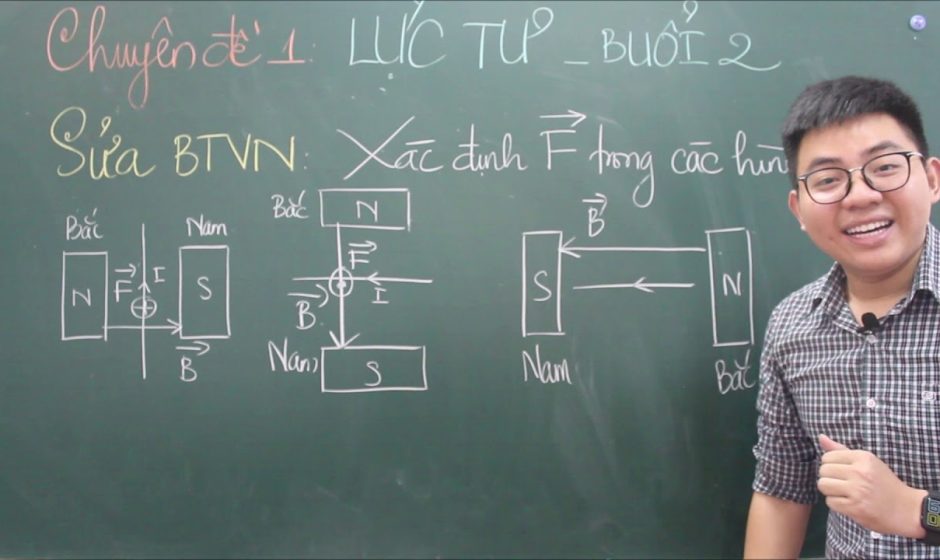 Chuyên đề 1: LỰC TỪ _ BUỔI 2
Sửa BTVN: Xác định F trong các hìn
Bắc
N
F
I
Nam
S
B
Bắc
N
F
I
B
Nam
S
B
S
Nam
N
Bắc